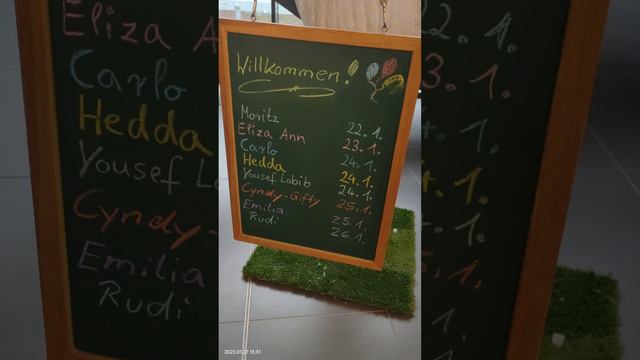 Willkommen!
Moritz 22.1.
Eliza Ann 23.1.
Carlo 24.1.
Hedda 24.1.
Yousef Labib 24.1.
Cyndy-Gifty 25.1.
Emilia 25.1.
Rudi 26.1.
2023.01.27 15:31